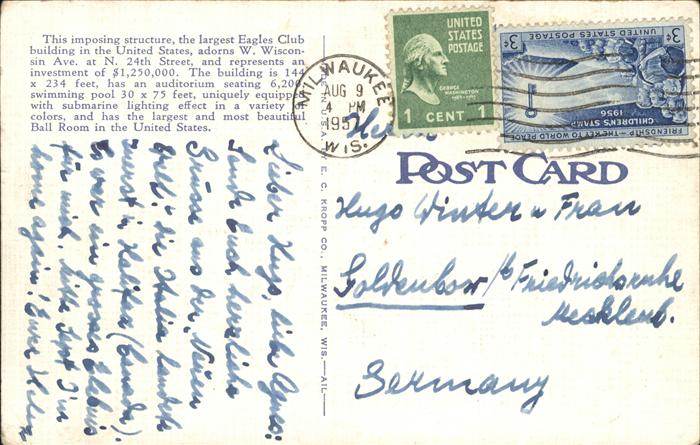 This imposing structure, the largest Eagles Club
building in the United States, adorns W. Wiscon-
sin Ave. at N. 24th Street, and represents an
investment of $1,250,000. The building is 144
x 234 feet, has an auditorium seating 6,200,
swimming pool 30 x 75 feet, uniquely equipped
with submarine lighting effect in a variety
colors, and has the largest and most beautiful
Ball Room in the United States.
MILWAUKEE
AUG 9
4 PM
195
WIS.
UNITED
STATES
POSTAGE
GEORGE
WASHINGTON
1 CENT 1
3¢ UNITED STATES POSTAGE 3¢
FRIENDSHIP—THE KEY TO WORLD PEACE
CHILDREN'S STAMP
1956
POST CARD
Herrn
Hugo Winter u Frau
Goldenbow / b Friedrichsruhe
Mecklenb.
Germany
E. C. KROPP CO., MILWAUKEE, WIS.
Lieber Hugo, liebe Agnes:
Sende Euch herzliche
Grüsse aus der "Neuen
Welt." die Italia landete
zuerst in Halifax (Canada).
Es war ein grosses Erlebnis
für mich. Mitte Sept I'm
home again! Eure Helen